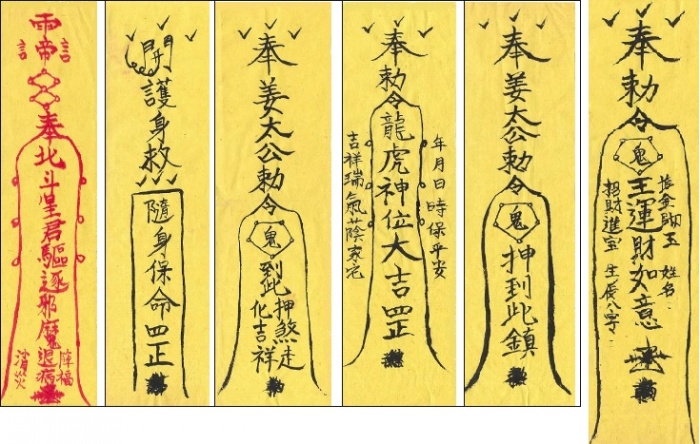 雨帝
言
言
奉北斗星君驅逐邪魔退病
降福
消災
開護身敕
隨身保命四正
奉姜太公勅令
鬼
到此押煞走
化吉祥
奉勅令龍虎神位大吉四正
年月日時保平安
吉祥瑞氣蔭家宅
奉姜太公勅令
鬼
押到此鎮
奉勅令
鬼
王運財如意
姓名
招財進宝 生辰八字